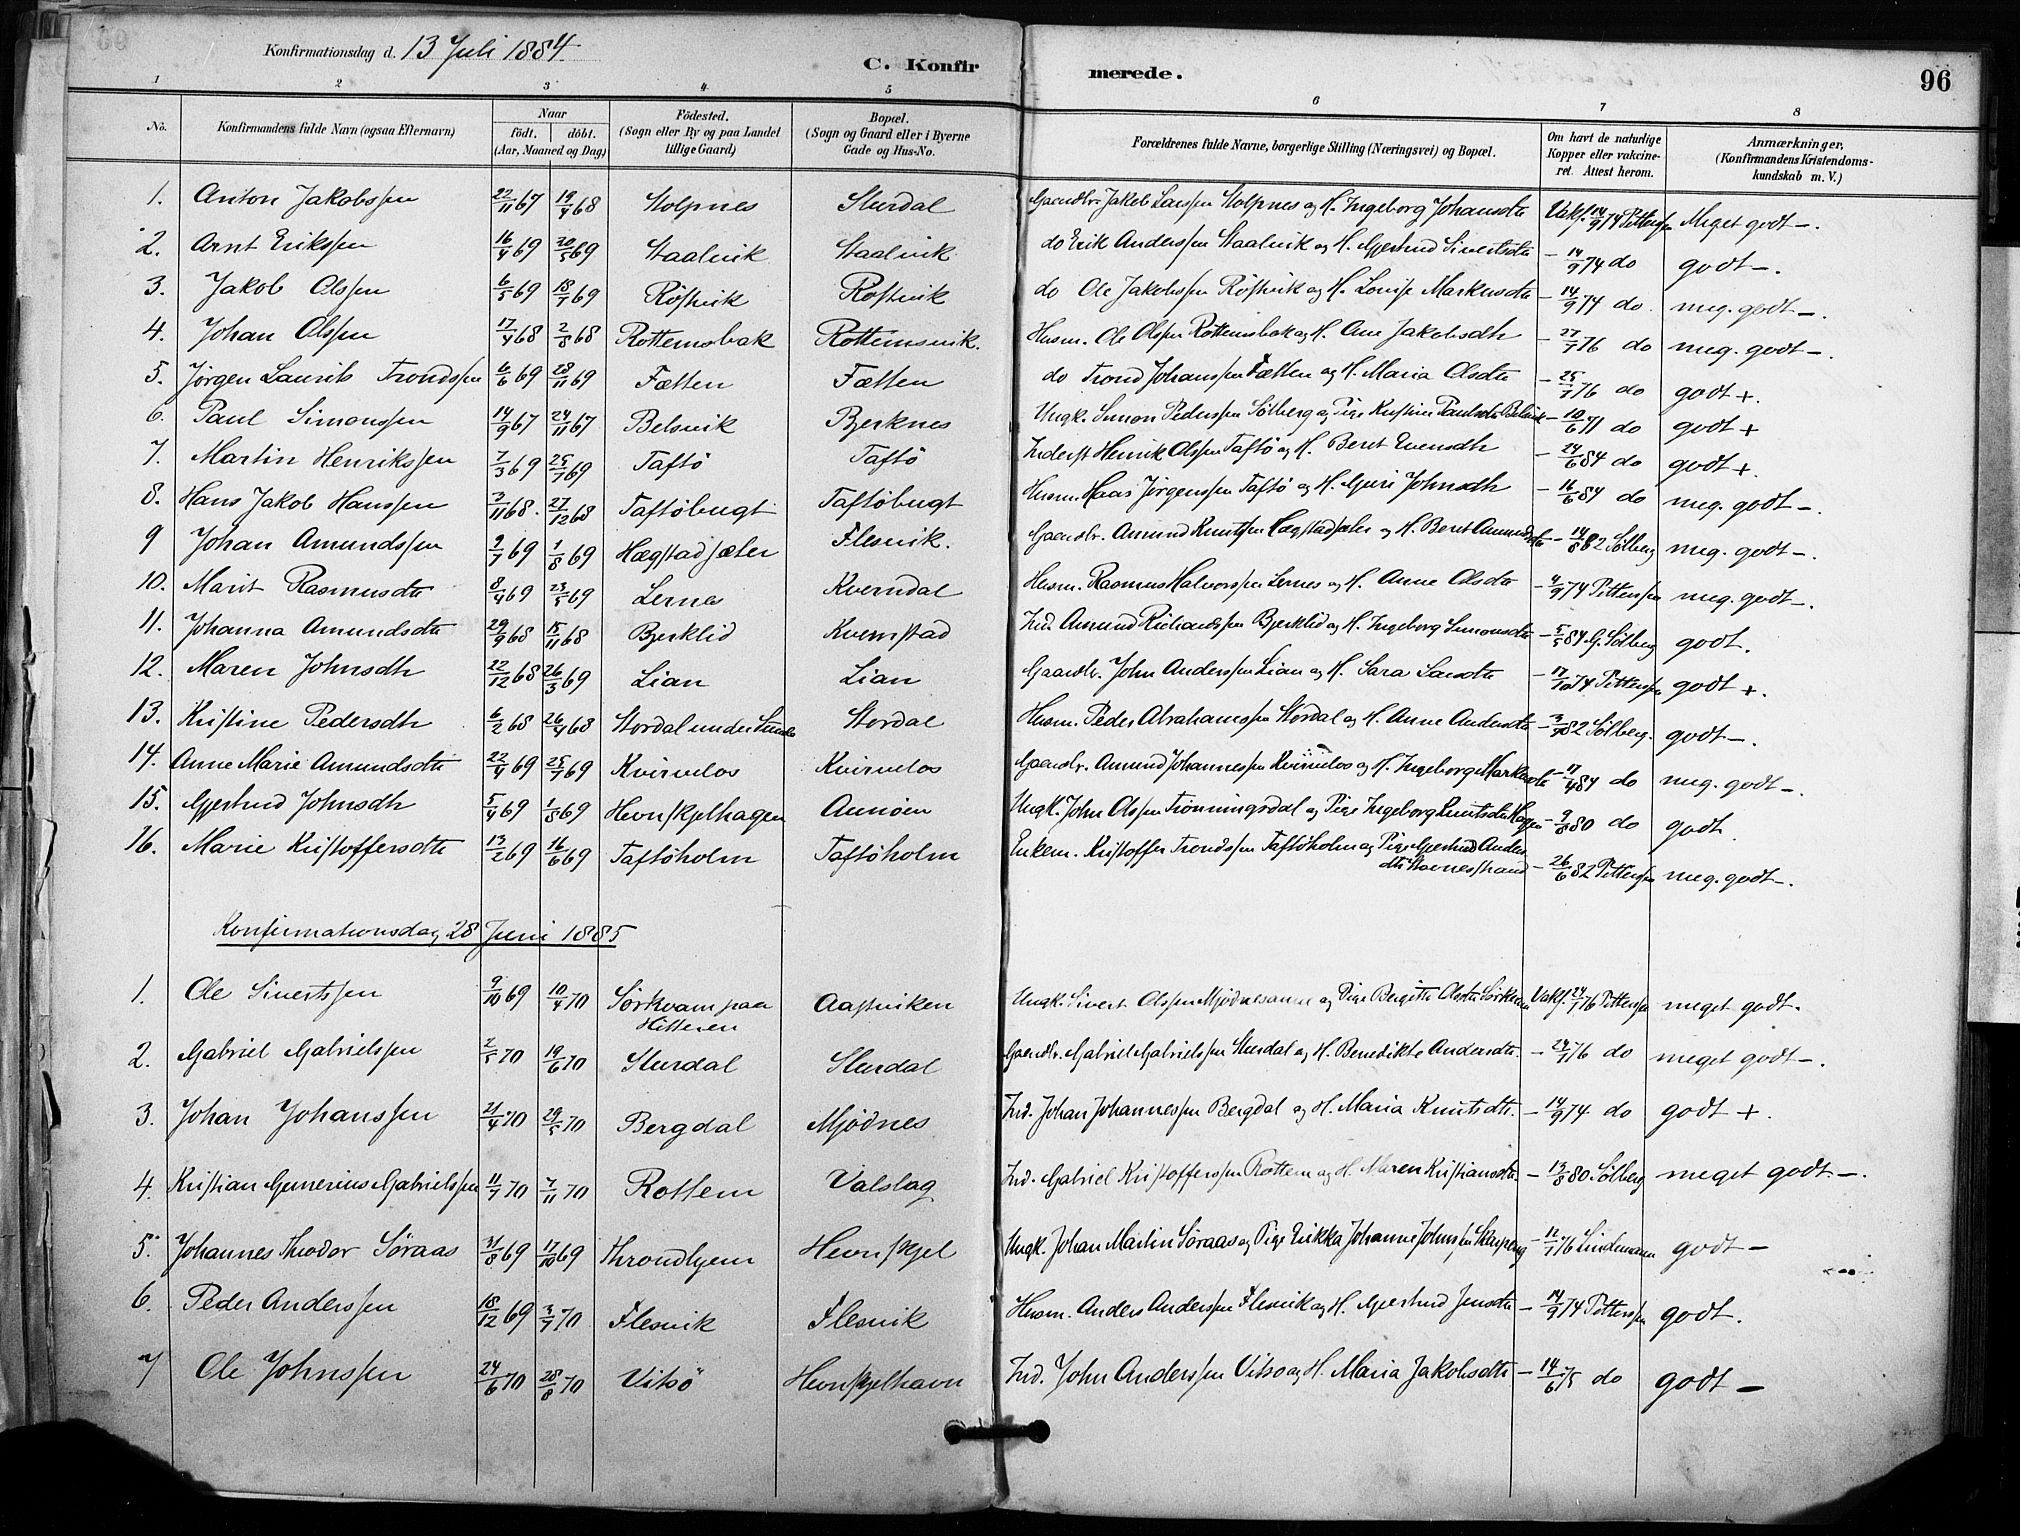 Konfirmationsdag d. 13 Juli 1884.
C. Konfirmerede.
96
1 2 3 4 5 6 7 8
No. Konfirmandens fulde Navn (ogsaa Efternavn) Naar födt. döbt. (Aar, Maaned og Dag) Födested. (Sogn eller By og paa Landet tillige Gaard) Bopæl. (Sogn og Gaard eller i Byerne Gade og Hus-No. Forældrenes fulde Navne, borgerlige Stilling (Næringsvei) og Bopæl. Om havt de naturlige Kopper eller vakcineret. Attest herom. Anmærkninger, (Konfirmandens Kristendomskundskab m. V.)
1. Anton Jakobssen 22/11 67 19/4 68 Stolpnes Slurdal Gaardbr. Jakob Larssen Stolpnes og H. Ingeborg Johansdtr Vakf. 14/9 74 Pettersen Meget godt -.
2. Arnt Erikssen 16/4 69 20/5 69 Staalvik Staalvik do Erik Anderssen Staalvik og H. Gjertrud Sivertsdtr - 14/9 74 do godt -.
3. Jakob Olssen 6/5 69 18/7 69 Röstvik Röstvik do Ole Jakobssen Röstvik og H. Louise Markusdtr - 14/9 74 do meg. godt -.
4. Johan Olssen 17/4 68 2/8 68 Rottemsbak Rottemsvik. Husm. Ole Olssen Rottemsbak og H. Ane Jakobsdtr - 27/7 76 do meg. godt -.
5. Jørgen Laurits Trondssen 6/6 69 28/11 69 Fætten Fætten do Trond Johanssen Fætten og H. Maria Olsdtr - 25/7 76 do godt +.
6. Paul Simonssen 14/9 67 24/11 67 Belsvik Bjerknes Ungk. Simon Pederssen Sølberg og Pige Kristine Paulsdtr Belsvik - 10/6 71 do godt +
7. Martin Henrikssen 7/3 69 25/7 69 Taftö Taftö Inderst Henrik Olssen Taftö og H. Beret Evensdtr - 24/6 84 do godt +
8. Hans Jakob Hanssen 3/11 68. 27/12 68 Taftöbugt Taftöbugt Husm. Haas Jörgenssen Taftö og H. Guri Johnsdtr - 16/6 84 do meg. godt -.
9 Johan Amundssen 9/7 69 1/8 69 Hægstadsæter Flesvik. Gaardbr. Amund Knutssen Hægstadsæter og H. Beret Amundsdtr - 14/8 82 Sølberg meg. godt -.
10. Marit Rasmusdtr 8/4 69 23/5 69 Lernes Kverndal Husm. Rasmus Halvorssen Lernes og H. Anne Olsdtr - 4/9 74 Pettersen meg. godt -.
11. Johanna Amundsdtr 29/9 68 15/11 68 Bjerklid Kvernstad Ind. Amund Richardssen Bjerklid og H. Ingeborg Simonsdtr - 5/5 84 G. Sølberg godt.
12. Maren Johnsdtr 22/12 68 26/3 69 Lian Lian Gaardbr. John Anderssen Lian og H. Sara Larsdtr - 17/10 74 Pettersen godt +.
13. Kristine Pedersdtr 6/2 68 26/4 68 Stordal under Stordal Husm. Peder Abrahamssen Stordal og H. Anne Andersdtr - 3/7 82 Sölberg. godt -.
14. Anne Marie Amundsdtr 22/4 69 25/7 69 Kvirvelos Kvirvelos Gaardbr. Amund Johannessen Kvirvelos og H. Ingeborg Markusdtr - 17/4 84 do meg. godt -.
15. Gjertrud Johnsdtr 5/4 69 1/8 69 Hevnskjelhagen Aunöen Ungk. John Olssen Trönningsdal og Pige Ingeborg Knutsdtr Hagen - 9/8 80 do godt.
16. Marie Kristoffersdtr 13/2 69 16/6 69 Taftöholm Taftöholm Enkem. Kristoffer Trondssen Taftöholm og Pige Gjertrud Anders
dtr Stavnesstrand - 26/6 82 Pettersen meg. godt -.
Konfirmationsdag 28 Juni 1885
1. Ole Sivertssen 9/10 69 10/4 70 Sörkvam paa Aastviken Ungk. Sivert Olssen Mjödnesaune og Pige Bergitte Olsdtr Sörkvam Vakf. 24/7 76 Pettersen meget godt.
Hitteren
2. Gabriel Gabrielssen 2/5 70 19/6 70 Slurdal Slurdal Gaardbr. Gabriel Gabrielssen Slurdal og H. Benedikte Andersdtr. - 24/7 76 do meget godt -.
3. Johan Johanssen 21/4 70 29/5 70 Bergdal Mjödnes Ind. Johan Johannessen Bergdal og H. Maria Knutsdtr. - 14/9 74 do godt +.
4. Kristian Gunerius Gabrielssen 11/7 70 7/11 70 Rottem Valslag Ind. Gabriel Kristofferssen Rottem og H. Maren Kristiansdtr. - 13/8 80 Sölberg meget godt. -.
5. Johannes Theodor Söraas 31/8 69 17/10 69 Throndhjem Hevnskjel Ungk. Johan Martin Söraas og Pige Erikka Johanne Johnssen - 12/7 76 Lindemann godt -
6. Peder Anderssen 18/12 69 3/7 70 Flesvik Flesvik Husm. Anders Anderssen Flesvik og H. Gjertrud Jensdtr - 14/9 74 Pettersen godt.
7 Ole Johnssen 24/6 70 28/8 70 Vitsö Hevnskjelhavn Ind. John Anderssen Vitsö og H. Maria Jakobsdtr - 14/6 75 do godt -